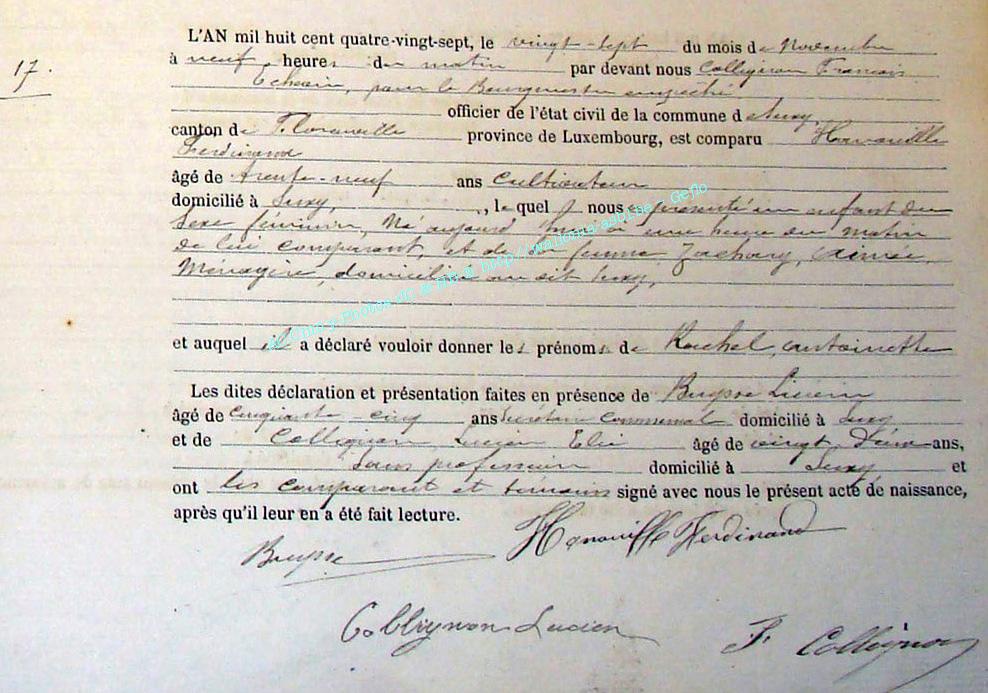 L'AN mil huit cent quatre-vingt-sept, le vingt-sept du mois de Novembre
17.
à neuf heures du matin par devant nous Collignon François
Echevin, pour le Bourgmestre empêché
officier de l'état civil de la commune de Suxy,
canton de Florenville province de Luxembourg, est comparu Hanouille
Ferdinand
âgé de trente-neuf ans Cultivateur
domicilié à Suxy, le quel nous a présenté un enfant du
sexe féminin, Né aujourd'hui à une heure du matin
de lui comparant, et de sa femme Zachary, Aimée,
Ménagère, domiciliée au dit Suxy,
et auquel il a déclaré vouloir donner les prénoms de Rachel, antoinette
Les dites déclaration et présentation faites en présence de Buysse
âgé de cinquante-cinq ans Secrétaire Communal domicilié à Suxy
et de Collignon, Lucien Elie âgé de vingt Deux ans,
Sans profession domicilié à Suxy et
ont les comparant et témoins signé avec nous le présent acte de naissance,
après qu'il leur en a été fait lecture.
Buysse Hanouille Ferdinand
Collignon Lucien F. Collignon